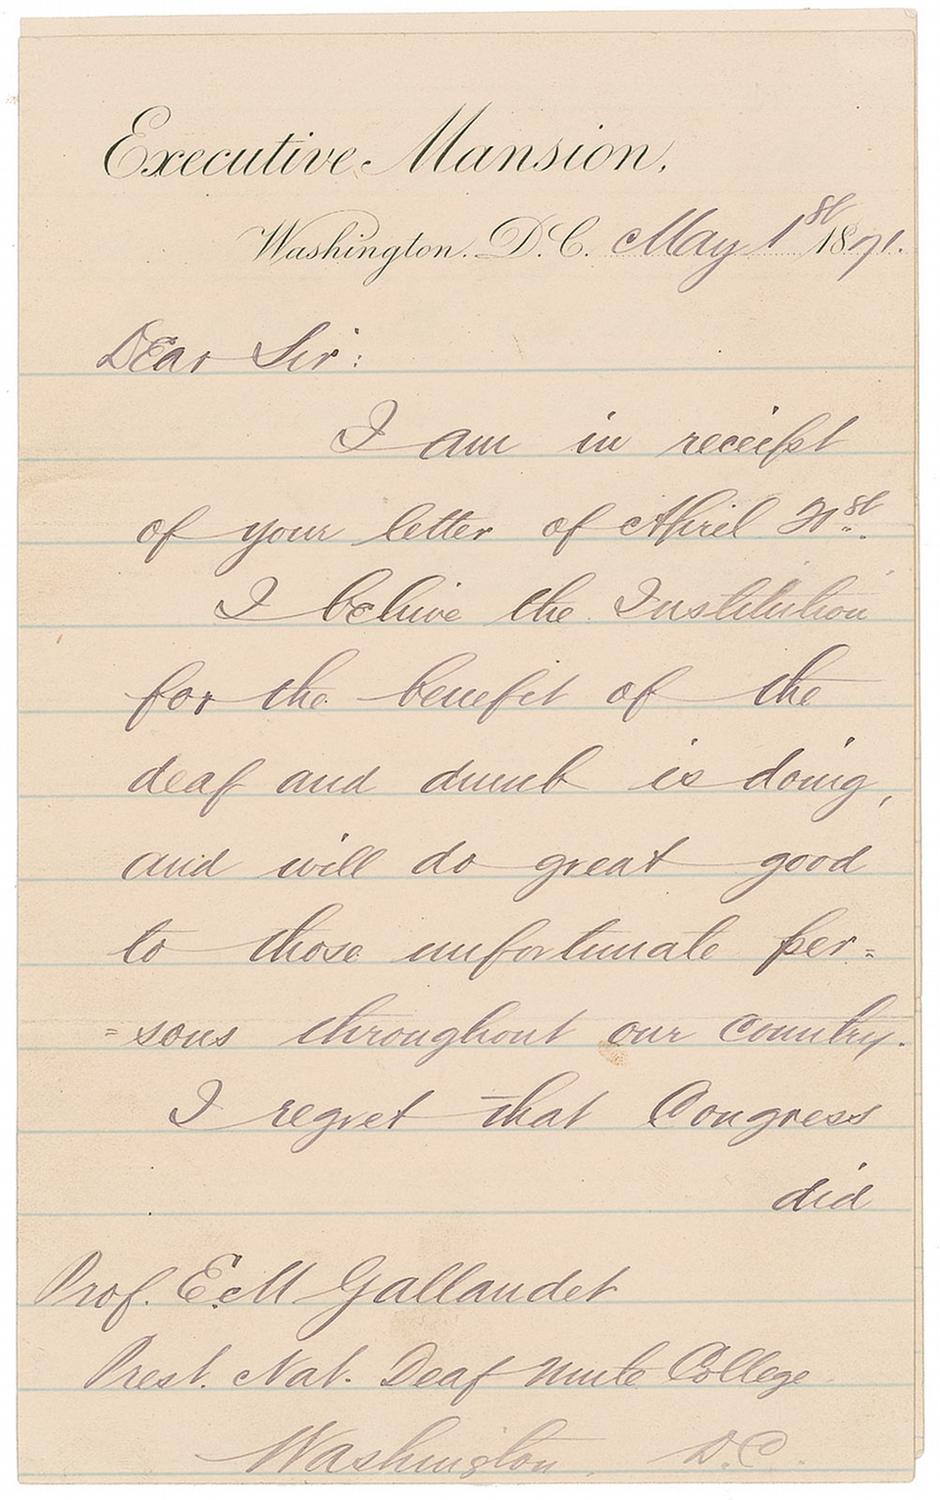 Executive Mansion,
Washington. D.C. May 1st 1871.
Dear Sir:
I am in receipt
of your letter of April 21st.
I believe the Institution
for the benefit of the
deaf and dumb is doing,
and will do great good
to those unfortunate per=
=sons throughout our country.
I regret that Congress
did
Prof. E. M Gallaudet
Prest. Nat. Deaf Mute College
Washington. D.C.